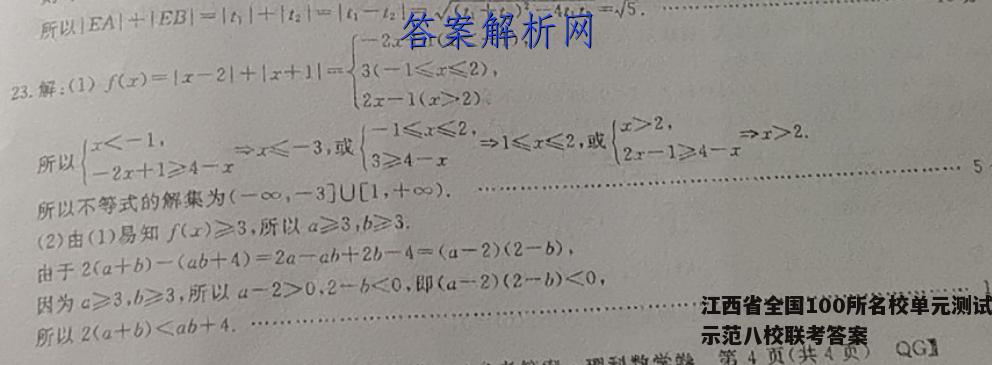 所以|EA|+|EB|=|t₁|+|t₂|=|t₁-t₂|=√(t₁+t₂)²-4t₁t₂=√5.
答案解析网
23.解:(1) f(x)=|x-2|+|x+1|={3(-1≤x≤2),
2x-1(x>2).
所以{x<-1, -2x+1≥4-x⇒x≤-3,或{-1≤x≤2, 3≥4-x⇒1≤x≤2,或{x>2, 2x-1≥4-x⇒x>2.
所以不等式的解集为(-∞,-3]∪[1,+∞). 5
(2)由(1)易知 f(x)≥3,所以 a≥3,b≥3.
由于 2(a+b)-(ab+4)=2a-ab+2b-4=(a-2)(2-b),
因为 a≥3,b≥3,所以 a-2>0,2-b<0,即(a-2)(2-b)<0,
所以 2(a+b)<ab+4.
江西省全国100所名校单元测试
示范八校联考答案
理科数学卷 第 4 页(共 4 页) QG】